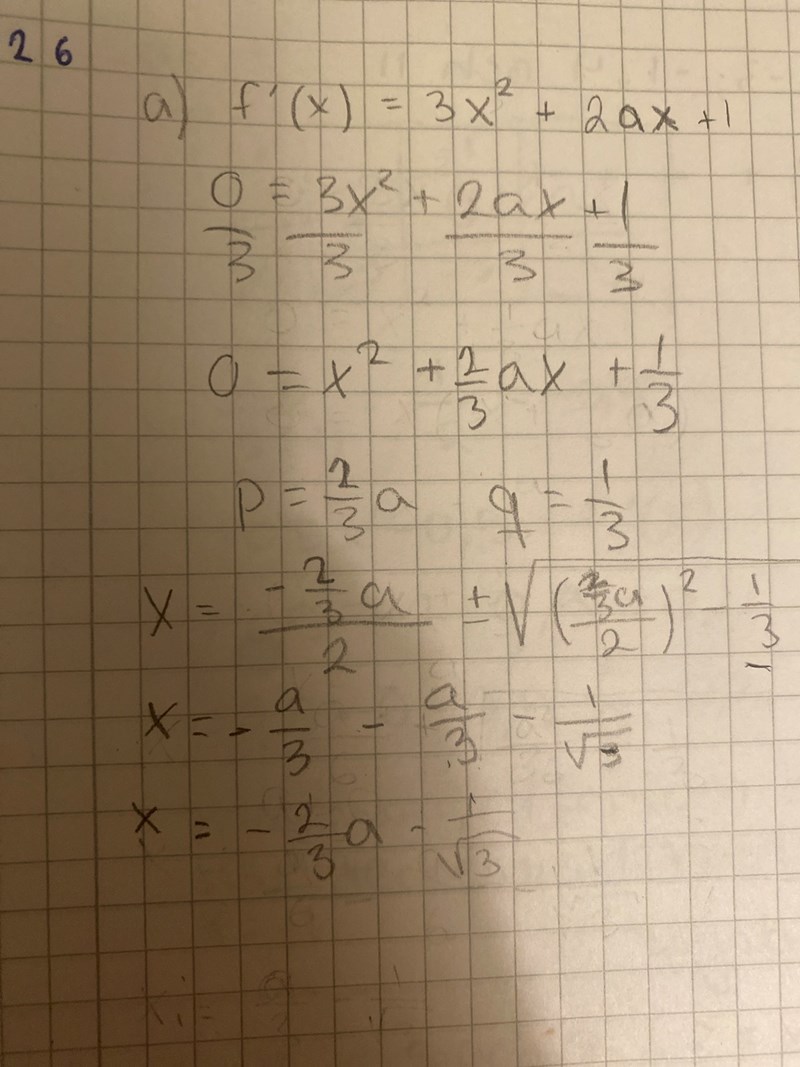 26
a) f'(x) = 3x² + 2ax + 1
0/3 = 3x²/3 + 2ax/3 + 1/3
0 = x² + 2/3 ax + 1/3
p = 2/3 a q = 1/3
x = (-2/3 a)/2 ± √((2/3 a)/2)² - 1/3
x = - a/3 - a/3 - 1/√3
x = - 2/3 a - 1/√3